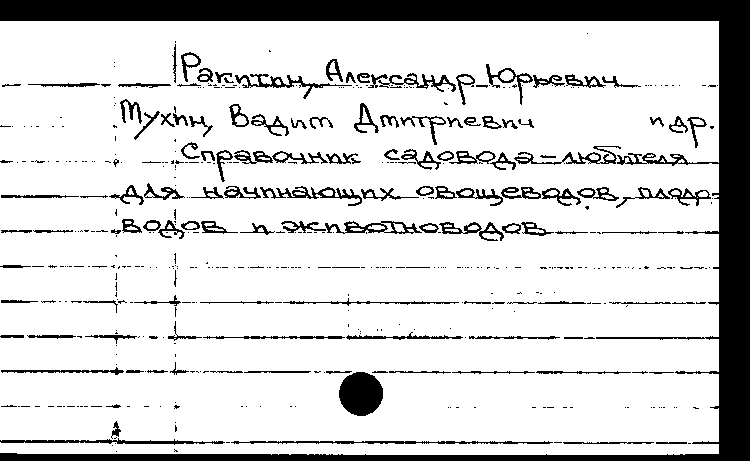 Ракитин, Александр Юрьевич
Мухин, Вадим Дмитриевич и др.
Справочник садовода-любителя
для начинающих овощеводов, плодо-
водов и животноводов